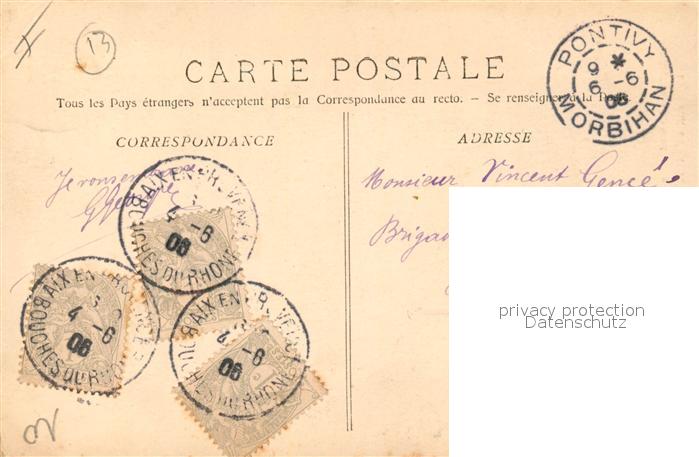 13
CARTE POSTALE
Tous les Pays étrangers n'acceptent pas la Correspondance au recto. - Se renseigner à la Poste.
PONTIVY
9 * 6
6 - 06
MORBIHAN
CORRESPONDANCE
ADRESSE
Monsieur Vincent
Brigad
AIX EN PROVENCE
4 - 6
06
BOUCHES DU RHONE
AIX EN PROVENCE
4 - 6
06
BOUCHES DU RHONE
AIX EN PROVENCE
4 - 6
06
BOUCHES DU RHONE
privacy protection
Datenschutz